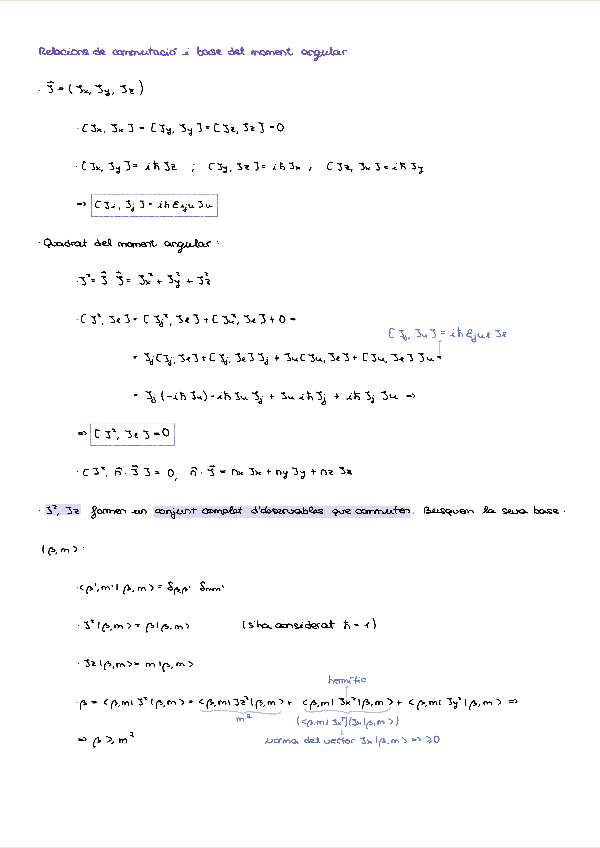 Relacions de commutació i base del moment angular
· J⃗ = (Jx, Jy, Jz)
· [Jx, Jx] = [Jy, Jy] = [Jz, Jz] = 0
· [Jx, Jy] = iħ Jz ; [Jy, Jz] = iħ Jx ; [Jz, Jx] = iħ Jy
=> [Ji, Jj] = iħ εijk Jk
· Quadrat del moment angular:
· J² = J⃗ J⃗ = Jx² + Jy² + Jz²
· [J², Jl] = [Jj², Jl] + [Jk², Jl] + 0 =
[Jj, Jk] = iħ εjkl Jl
= Jj[Jj, Jl] + [Jj, Jl] Jj + Jk[Jk, Jl] + [Jk, Jl] Jk =
= Jj (-iħ Jk) - iħ Jk Jj + Jk iħ Jj + iħ Jj Jk =>
=> [J², Jl] = 0
· [J², n̂ · J⃗] = 0, n̂ · J⃗ = nx Jx + ny Jy + nz Jz
· J², Jz formen un conjunt complet d'observables que commuten. Busquem la seva base
|β, m>:
· <β', m'|β, m> = δβ,β' δmm'
· J²|β, m> = β|β, m> (s'ha considerat ħ = 1)
· Jz|β, m> = m|β, m>
hermític
· β = <β, m|J²|β, m> = <β, m|Jz²|β, m> + <β, m|Jx²|β, m> + <β, m|Jy²|β, m> =>
m² (<β, m|Jx†)(Jx|β, m>)
=> β ⩾ m² norma del vector Jx|β, m> => ⩾0